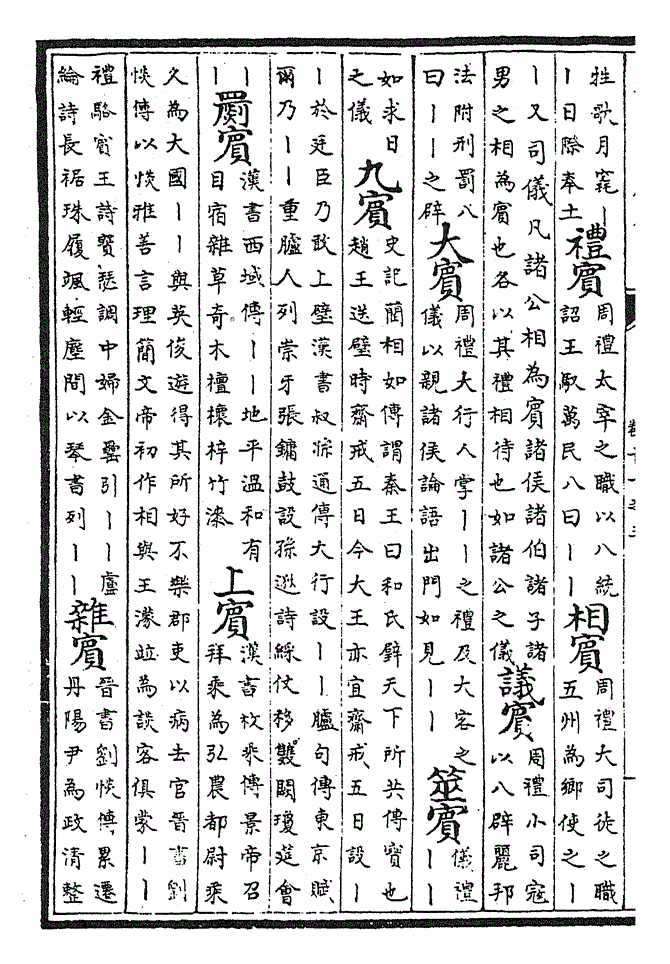 牲歌月窕｜
｜日際奉土
禮賓
周禮太宰之職以八統
詔王馭萬民八曰｜｜
相賓
周禮大司徒之職
五州為鄉使之｜
｜又司儀凡諸公相為賓諸侯諸伯諸子諸
男之相為賓也各以其禮相待也如諸公之儀
議賓
周禮小司寇
以八辟麗邦
法附刑罰八
曰｜｜之辟
大賓
周禮大行人掌｜｜之禮及大客之
儀以親諸侯論語出門如見｜｜
筮賓
儀禮
｜｜
如求日
之儀
九賓
史記藺相如傳謂秦王曰和氏璧天下所共傳寶也
趙王送璧時齋戒五日今大王亦宜齋戒五日設｜
｜於廷臣乃敢上璧漢書叔孫通傳大行設｜｜臚句傳東京賦
爾乃｜｜重臚人列崇牙張鏞鼓設孫逖詩綵仗移雙闕瓊筵會
｜
｜
罽賓
漢書西域傳｜｜地平溫和有
目宿雜草奇木檀櫰梓竹漆
上賓
漢書枚乘傳景帝召
拜乘為弘農都尉乘
久為大國｜｜與英俊遊得其所好不樂郡吏以病去官晉書劉
惔傳以惔雅善言理簡文帝初作相與王濛竝為談客俱蒙｜｜
禮駱賓王詩寳瑟調中婦金罍引｜｜盧
綸詩長裾珠履颯輕塵間以琴書列｜｜
雜賓
晉書劉惔傳累遷
丹陽尹為政清整